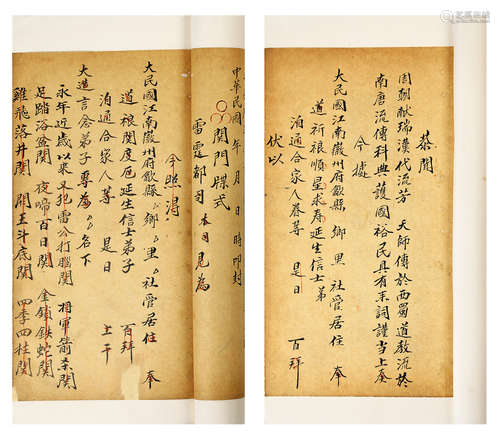 恭聞
周朝献瑞漢代流芳 天師傳於西蜀道教流於
南唐流傳科典護國裕民具有朿詞謹當上奏
今據
大民國江南徽州府歙縣 鄉 里 社管居住 奉
道祈禳順星求壽延生信士弟
洎通合家人眷等 是日 百拜
伏以
中華民國 年 月 日 時叩封
關門牒式
雷霆都司 本司 見為
今照得
大民國江南徽州府歙縣 鄉 里 社管居住 奉
道禳關度厄延生信士弟子 百拜
洎通合家人等 是日 上干
大造言念弟子 專為 名下
永年近歲以來又犯雷公打腦關 將軍箭 關
足踏浴盆關 夜啼百日關 金鎖鉄蛇關
雞飛落井關 閻王斗底關 四季四柱關